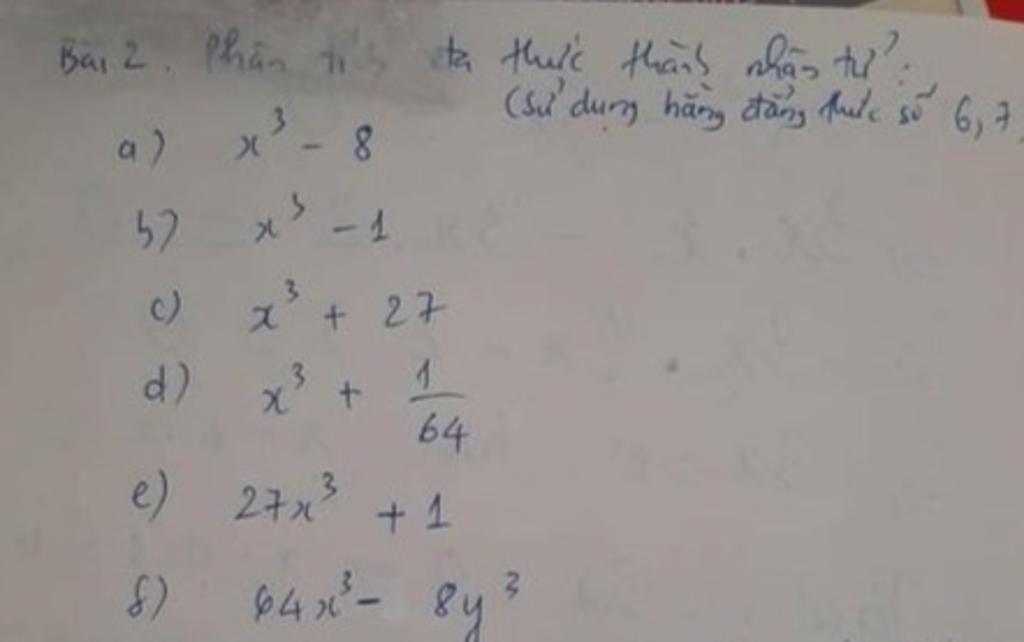 Bài 2. Phân tích đa thức thành nhân tử:
(sử dụng hằng đẳng thức số 6, 7
a) x³ - 8
b) x³ - 1
c) x³ + 27
d) x³ + 1/64
e) 27x³ + 1
f) 64x³ - 8y³